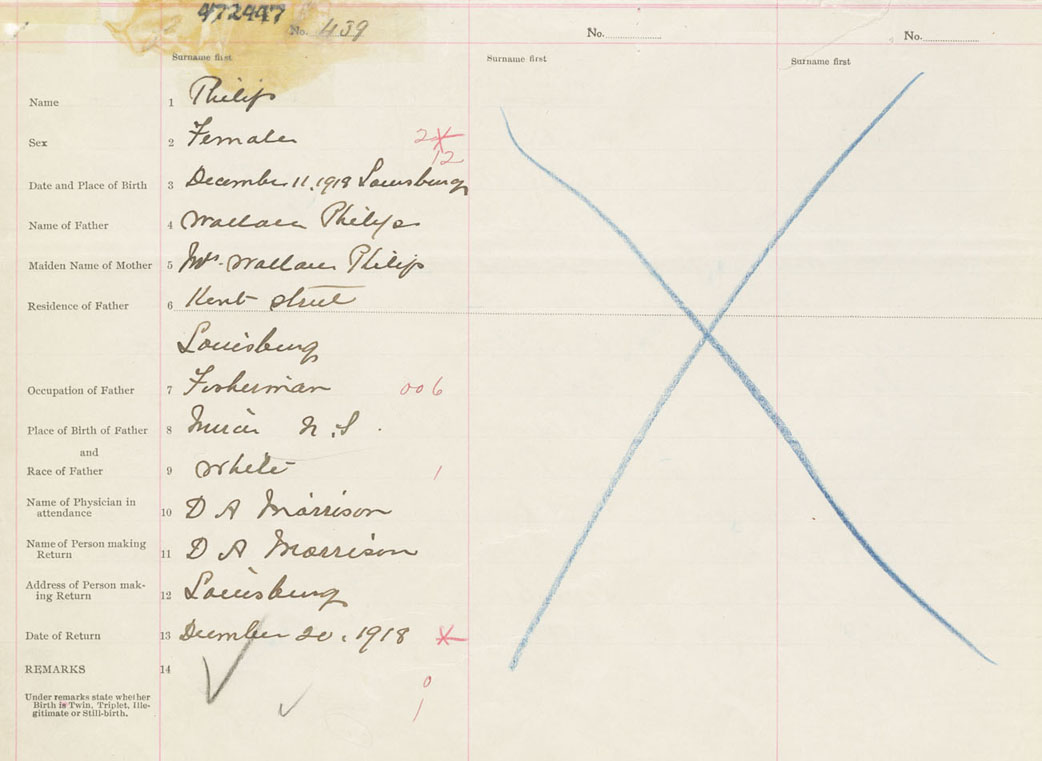 472447
No. 439
No.
No.
Surname first
Surname first
Surname first
Name 1 Philip
Sex 2 Female 2
12
Date and Place of Birth 3 December 11, 1918 Louisburg
Name of Father 4 Wallace Philip
Maiden Name of Mother 5 Mrs. Wallace Philip
Residence of Father 6 Kent Street
Louisburg
Occupation of Father 7 Fisherman 006
Place of Birth of Father 8 N.S.
and
Race of Father 9 White 1
Name of Physician in
attendance 10 D A Morrison
Name of Person making
Return 11 D A Morrison
Address of Person mak-
ing Return 12 Louisburg
Date of Return 13 December 20, 1918
REMARKS 14
0
Under remarks state whether
Birth is Twin, Triplet, Ille-
gitimate or Still-birth.
1